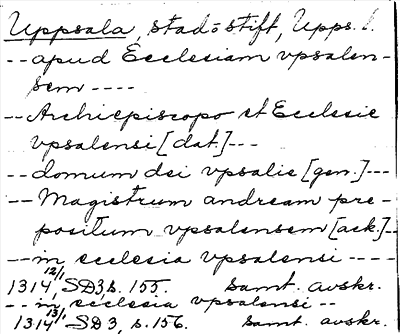 Uppsala, stad o stift, Upps. l.
-- apud Ecclesiam vpsalen-
sem ----
-- Archiepiscopo et Ecclesie
vpsalensi [dat.] ---
-- domum dei vpsalie [gen.] ---
-- Magistrum andream pre-
positum vpsalensem [ack.] --
-- in ecclesia vpsalensi ----
1314 12/1 SD3 s. 155. Samt. avskr.
-- in ecclesia vpsalensi --
1314 13/1 SD 3, s. 156. Samt. avskr.